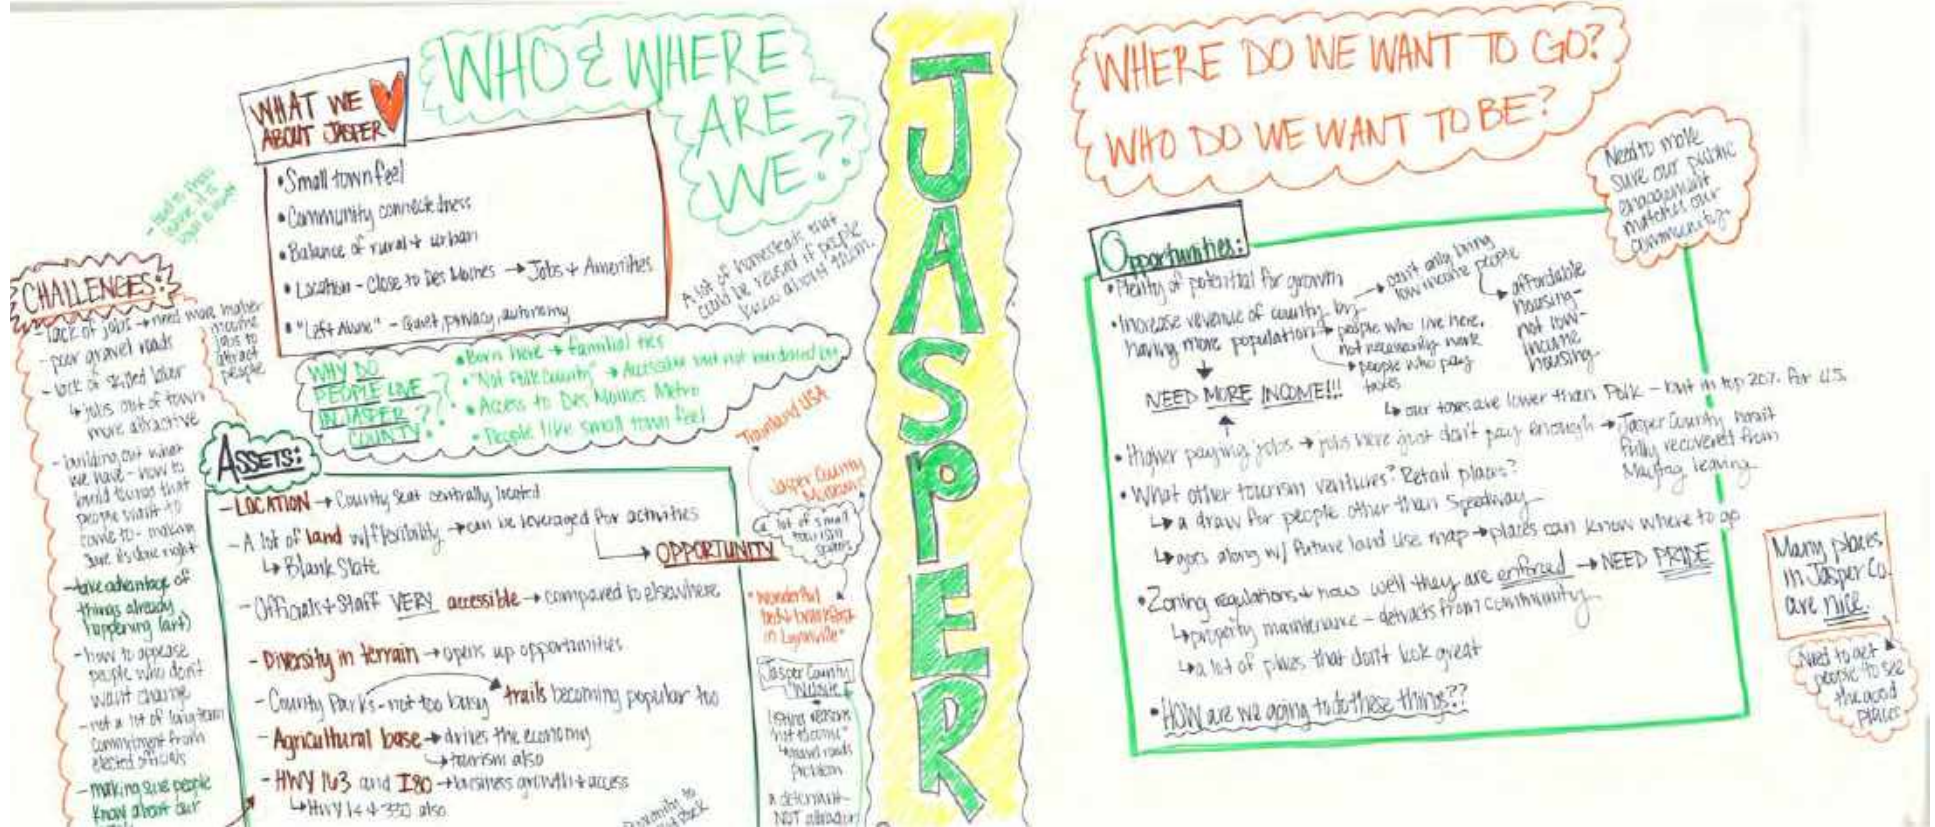 WHO & WHERE
ARE
WE??
WHAT WE
ABOUT JASPER
• Small town feel
• Community connectedness
• Balance of rural + urban
• Location - Close to Des Moines → Jobs + Amenities
• "Left Alone" - Quiet, privacy, autonomy
A lot of homesteads that
could be reused if people
know about them.
CHALLENGES:
- lack of jobs → need more higher
income
jobs to
attract
people
- poor gravel roads
- lack of skilled labor
↳ jobs out of town
more attractive
- building out what
we have - how to
build things that
people want to
come to - making
sure its done right
- take advantage of
things already
happening (art)
- how to appease
people who don't
want change
- not a lot of long term
commitment from
elected officials
- making sure people
know about our
WHY DO
PEOPLE LIVE
IN JASPER
COUNTY??
• Born here → familial ties
• "Not Polk County" → Accessible but not burdened by
• Access to Des Moines Metro
• People like small town feel
ASSETS:
- LOCATION → County Seat centrally located
- A lot of land w/ flexibility → can be leveraged for activities
→ OPPORTUNITY
↳ Blank Slate
- Officials + Staff VERY accessible → compared to elsewhere
- Diversity in terrain → opens up opportunities
- County Parks - not too busy → trails becoming popular too
- Agricultural base → drives the economy
↳ tourism also
- HWY 163 and I80 → business growth + access
↳ Hwy 14 + 330 also
Trainland USA
Jasper County
Museum
a lot of small
tourism
spots
"Wonderful
bed + breakfast
in Lynnville"
Jasper County
Website
listing reasons
"not to come"
↳ gravel roads
problem
NOT
JASPER
WHERE DO WE WANT TO GO?
WHO DO WE WANT TO BE?
Need to make
sure our public
engagement
matches our
community
Opportunities:
• Plenty of potential for growth
• Increase revenue of county by
having more population
→ can't only bring
low income people
→ affordable
housing -
not low-
income
housing
→ people who live here,
not necessarily work
→ people who pay
taxes
NEED MORE INCOME!!!
↳ our taxes are lower than Polk - but in top 20% for U.S.
• Higher paying jobs → jobs here just don't pay enough → Jasper County hasn't
fully recovered from
Maytag leaving
• What other tourism ventures? Retail places?
↳ a draw for people other than Speedway
↳ goes along w/ future land use map → places can know where to go
• Zoning regulations + how well they are enforced → NEED PRIDE
↳ property maintenance - detracts from community
↳ a lot of places that don't look great
• HOW are we going to do these things??
Many places
in Jasper Co.
are nice.
Need to get
people to see
the good
places